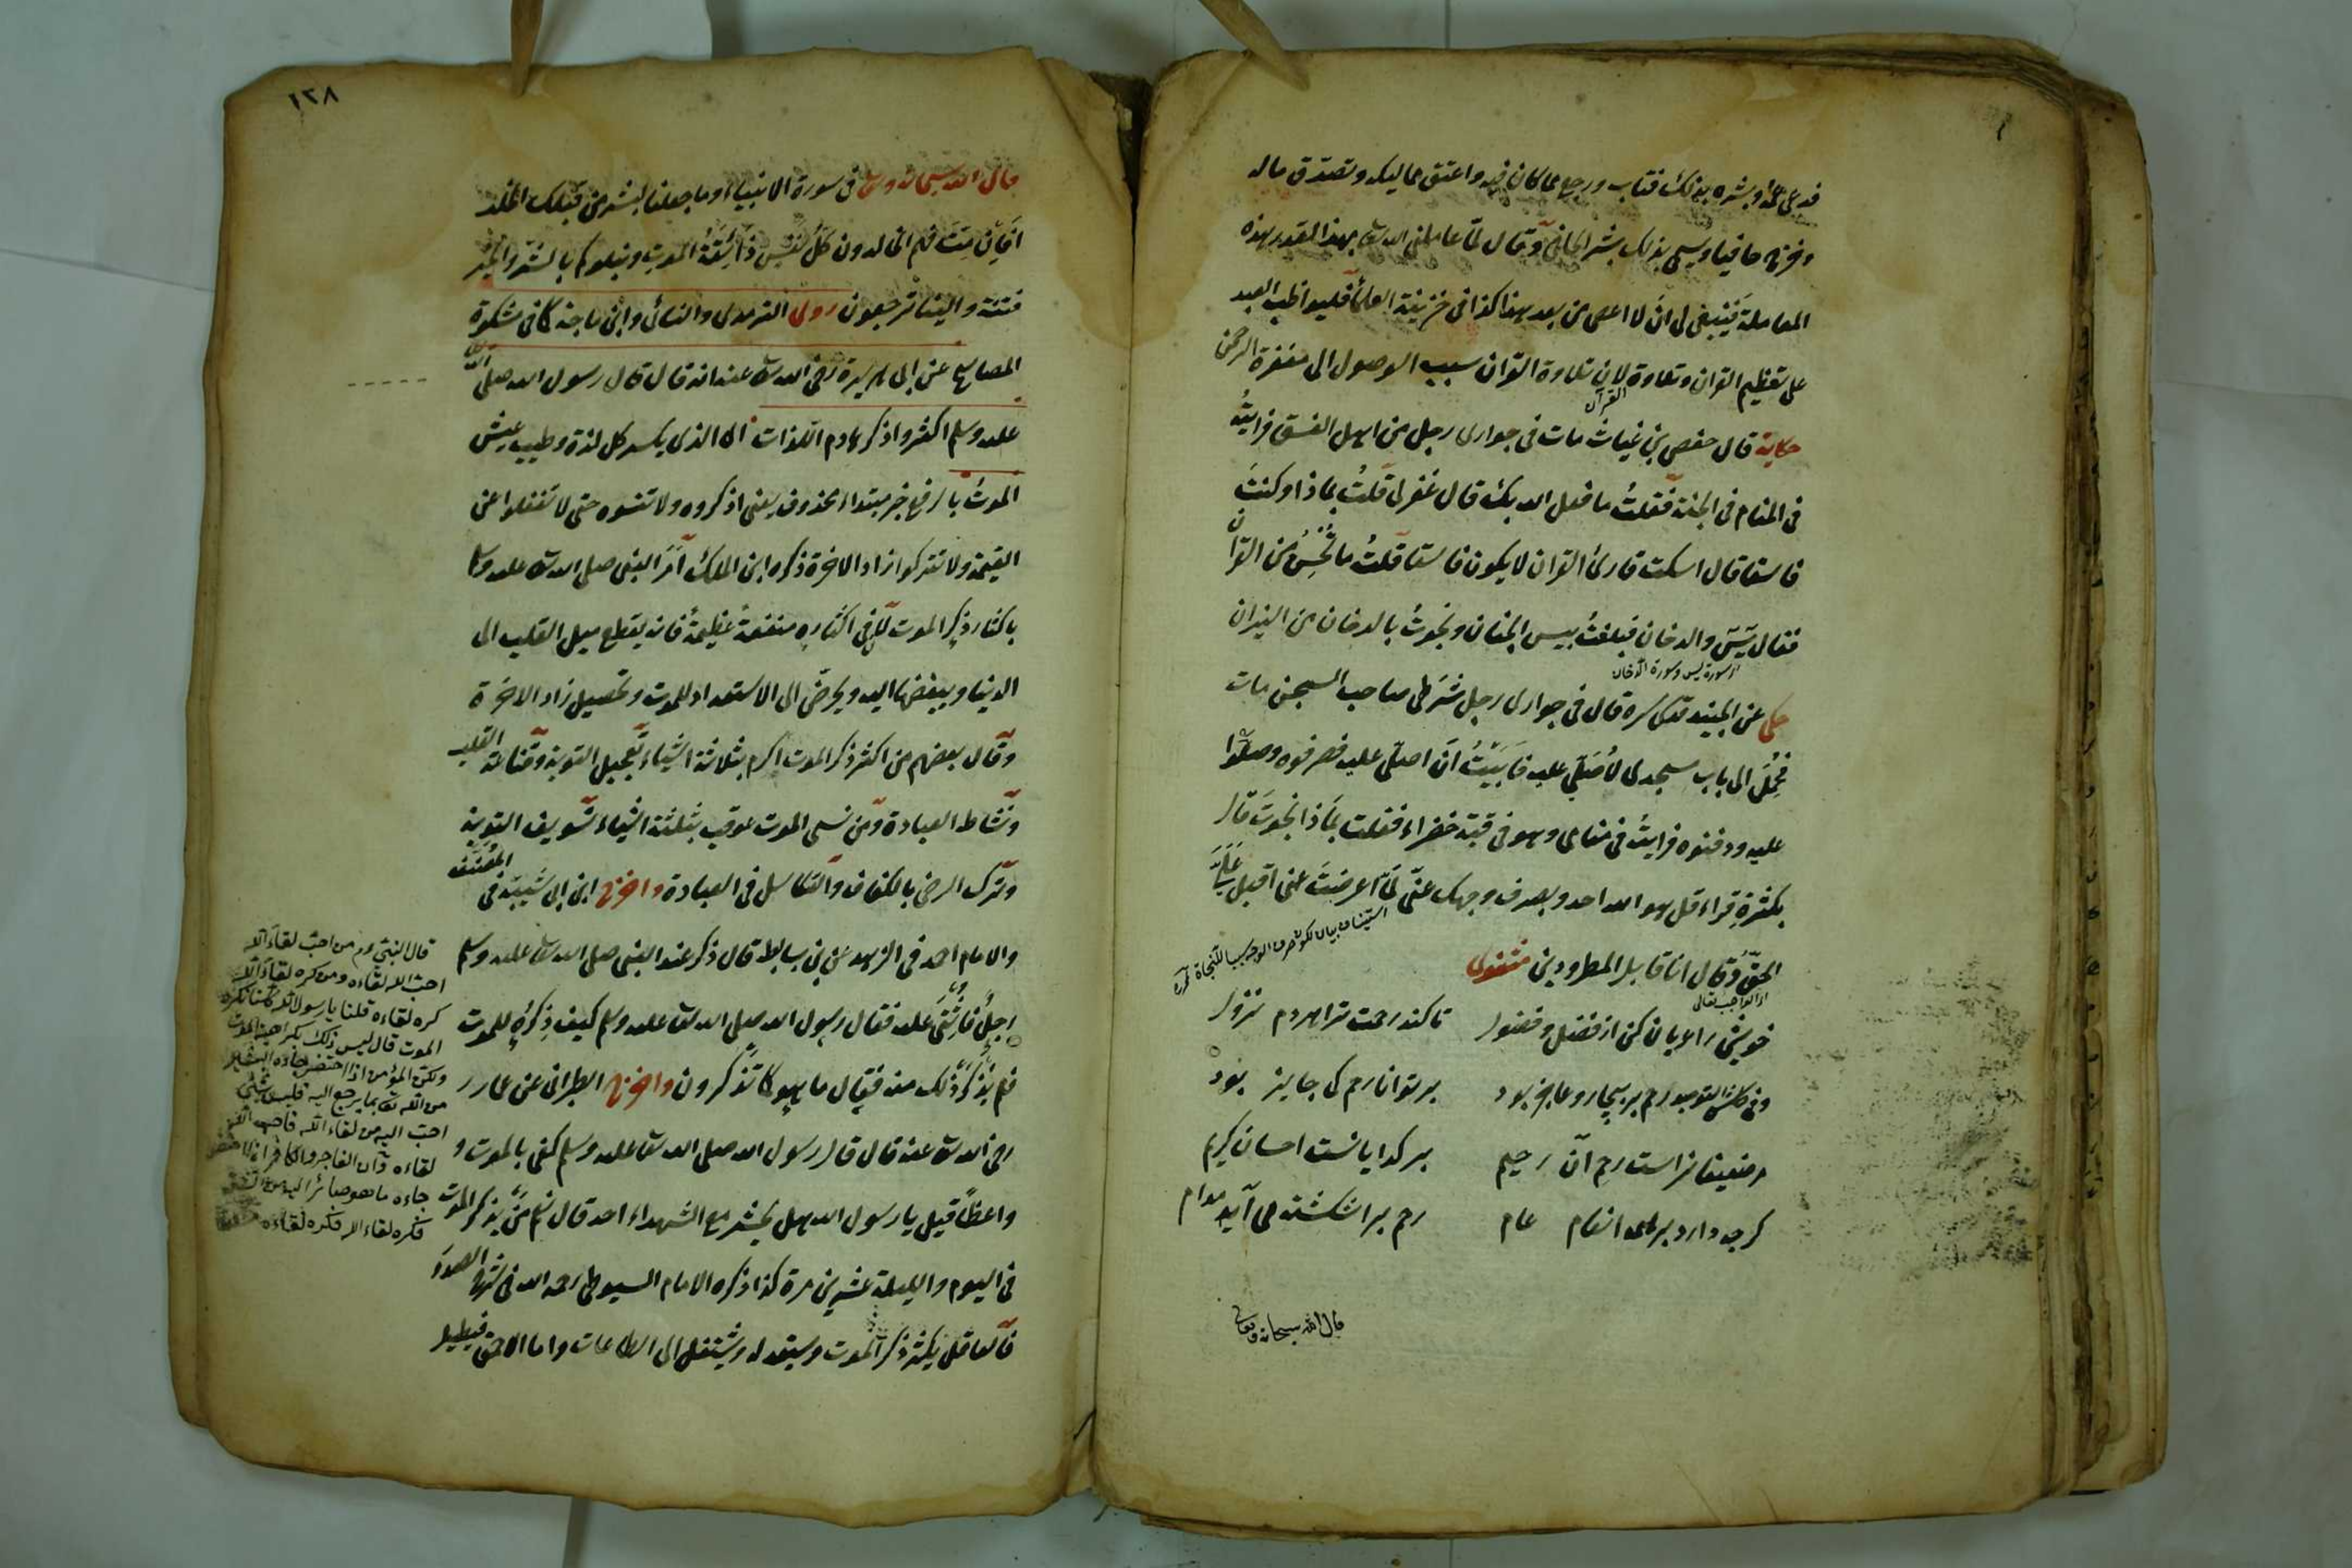 فدعى غلمه وبشره بذلك فتاب ورجع عما كان فيه واعتق مماليكه وتصدق ماله
وخرج حافيا ويسمى بذلك بشر الحافى وقال لما عاملنى الله تعالى بهذا القدر بهذه
المعاملة فينبغى لى ان لا اعصى من بعد هذا كذا فى خزينة العلماء فليواظب العبد
على تعظيم القران وتلاوة لان تلاوة القران سبب الوصول الى مغفرة الرحمن
القرآن
حكاية قال حفص بن غياث مات فى جوارى رجل من اهل الفسق فرايته
فى المنام فى الجنة فقلت ما فعل الله بك قال غفر لى قلت بماذا وكنت
فاسقا قال اسكت قارئ القران لا يكون فاسقا قلت ما تحسن من القران
فقال يس والدخان فبلغت بيس الجنان ونجوت بالدخان من النيران
اى سورة يس وسورة الدخان
حكى عن الجنيد قدس سره قال فى جوارى رجل شرطى صاحب السجن مات
فحمل الى باب مسجدى لاصلى عليه فابيت ان اصلى عليه فصرفوه وصلوا
عليه ودفنوه فرايت فى منامى وهو فى قبة خضراء فقلت بماذا نجوت قال
بكثرة قراءة قل هو الله احد وبصرف وجهك عنى لما اعرضت عنى اقبل على
الحق وقال انا قابل المطرودين مثنوى
اى الواجب تعالى
خويش را عريان كن از فضل وفضول تا كند رحمت ترا هردم نزول
رحم بر بيچاره وعاجز بود بر توانا رحم كى جايز بود
بر ضعيفانراست رحم آن رحيم بر كدايانست احسان كريم
كرچه دارد بر همه انعام عام رحم بر اشكسته مى آيد مدام
قال الله سبحانه وتعالى
١٣٨
قال الله سبحانه وتعالى فى سورة الانبياء وما جعلنا لبشر من قبلك الخلد
افاين مت فهم الخالدون كل نفس ذائقة الموت ونبلوكم بالشر والخير
فتنة والينا ترجعون روى الترمذى والنسائى وابن ماجة كما فى مشكوة
المصابيح عن ابى هريرة رضى الله تعالى عنه انه قال قال رسول الله صلى الله
عليه وسلم اكثروا ذكر هادم اللذات اى الذى يكسر كل لذة وطيب عيش
الموت بالرفع خبر مبتداء محذوف يعنى اذكروه ولا تنسوه حتى لا تغفلوا عن
القيمة ولا تتركوا زاد الاخرة ذكره ابن الملك امر النبى صلى الله تعالى عليه وسلم
باكثار ذكر الموت لان فى اكثاره منفعة عظيمة فانه يقطع ميل القلب الى
الدنيا ويبغضها اليه ويحرض الى الاستعداد للموت وتحصيل زاد الاخرة
وقال بعضهم من اكثر ذكر الموت اكرم بثلاثة اشياء تعجيل التوبة وقناعة القلب
ونشاط العبادة ومن نسى الموت عوقب بثلثة اشياء تسويف التوبة
وترك الرضى بالكفاف والتكاسل فى العبادة واخرج ابن ابى شيبة فى المصنف
والامام احمد فى الزهد عن بن سابط قال ذكر عند النبى صلى الله تعالى عليه وسلم
رجل فاثنى عليه فقال رسول الله صلى الله تعالى عليه وسلم كيف ذكره للموت
فلم يذكر ذلك منه فقال ما هو كما تذكرون واخرج الطبرانى عن عمار
رضى الله تعالى عنه قال قال رسول الله صلى الله تعالى عليه وسلم كفى بالموت و
واعظا قيل يا رسول الله هل يحشر مع الشهداء احد قال نعم من يذكر الموت
فى اليوم والليلة عشرين مرة كذا ذكره الامام السيوطى رحمه الله فى شرح الصدور
فالعاقل يكثر ذكر الموت ويستعد له ويشتغل الى الطاعات واما الاحمق فيطيل
قال النبى م من احب لقاء الله
احب الله لقاءه ومن كره لقاء الله
كره لقاءه قلنا يا رسول الله كلنا نكره
الموت قال ليس ذلك بكراهية الموت
ولكن المؤمن اذا احتضر جاءه البشير
من الله تعالى بما يرجع اليه فليس شئ
احب اليه من لقاء الله فاحب الله
لقاءه وان الفاجر والكافر اذا احتضر
جاءه ما هو صائر اليه من الشر
فكره لقاء الله فكره لقاءه